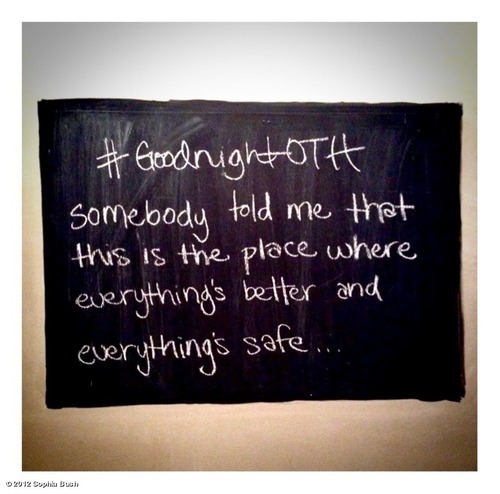 #GoodnightOTH
somebody told me that
this is the place where
everything's better and
everything's safe...
© 2012 Sophia Bush